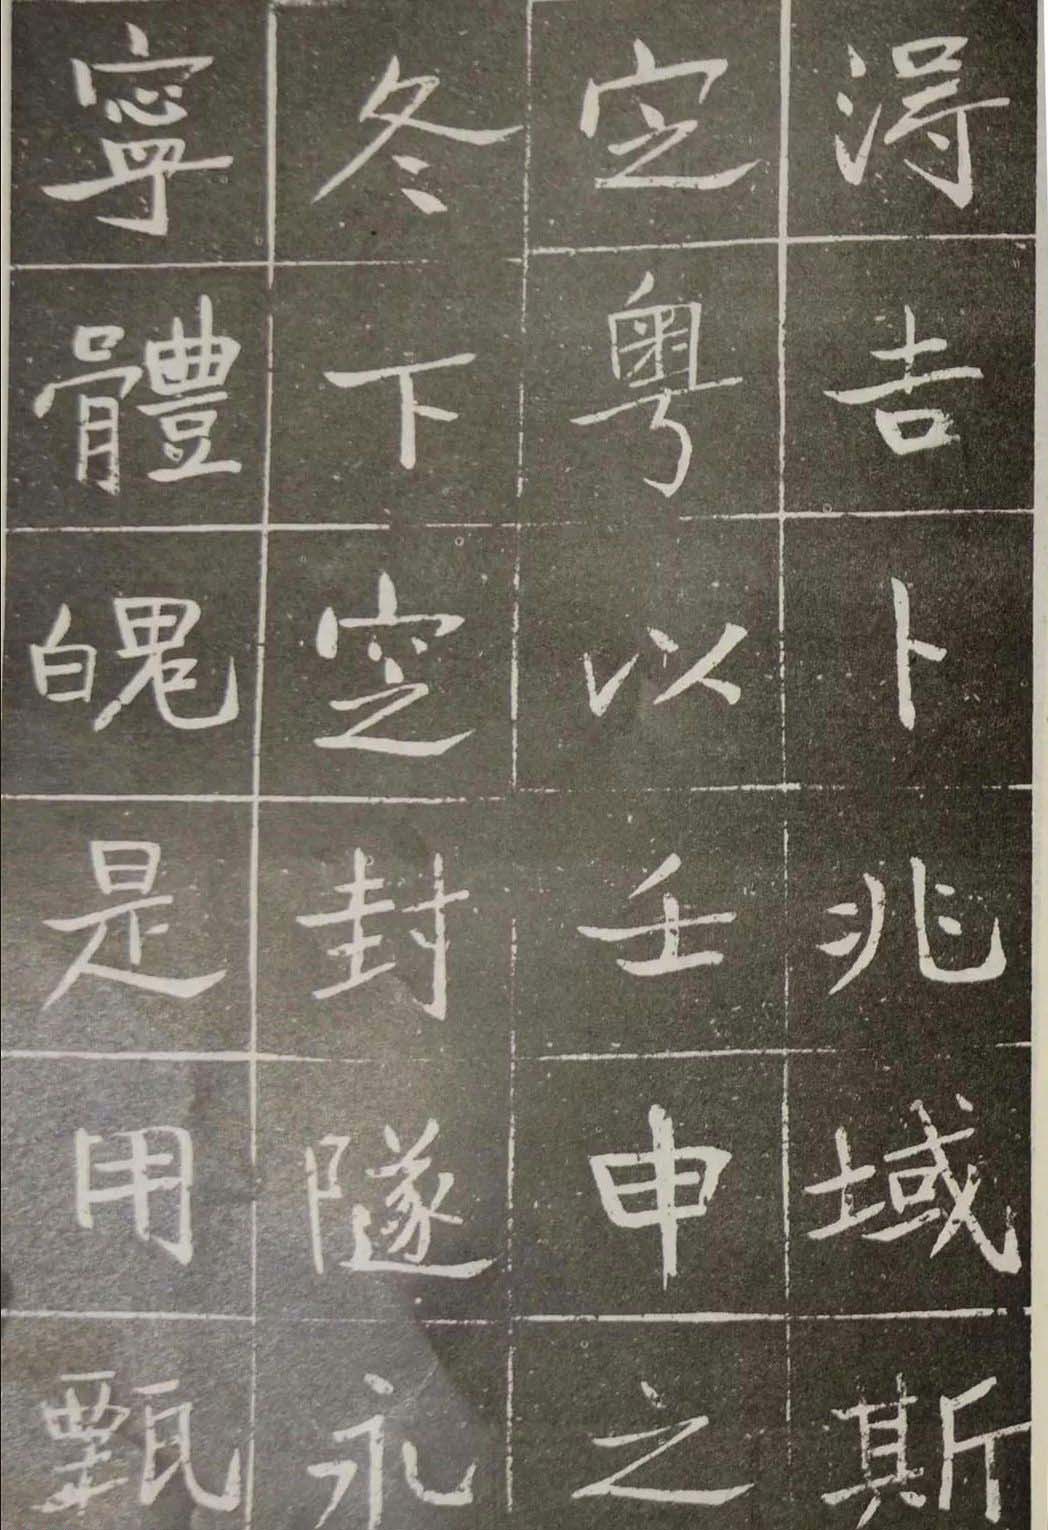 得吉卜兆域斯
定粤以壬申之
冬下窆封隧永
寧體魄是用甄